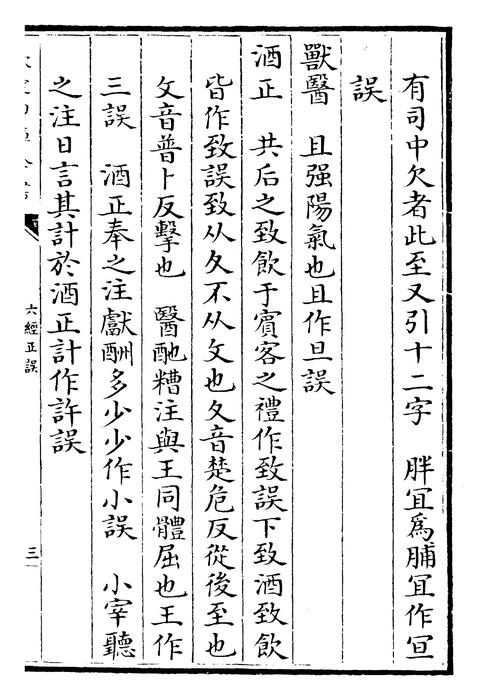 有司中欠者此至又引十二字　胖宜爲脯宜作宣
誤
獸醫　且强陽氣也且作旦誤
酒正　共后之致飲于賓客之禮作致誤下致酒致飲
皆作致誤致从夂不从攵也夂音楚危反從後至也
攵音普卜反擊也　醫酏糟注與王同體屈也王作
三誤　酒正奉之注獻酬多少少作小誤　小宰聽
之注日言其計於酒正計作許誤
六經正誤
三